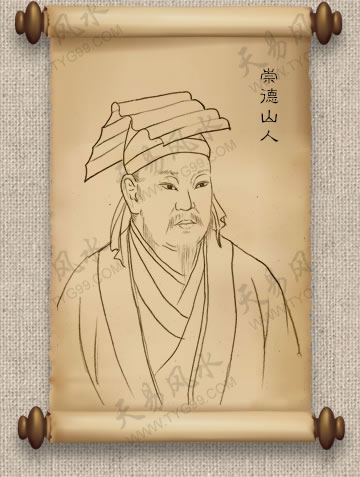 崇德山人
天易风水
WWW.TYG99.COM
天易风水
WWW.TYG99.COM
天易风水
WWW.TYG99.COM
天易风水
WWW.TYG99.COM
天易风水
WWW.TYG99.COM